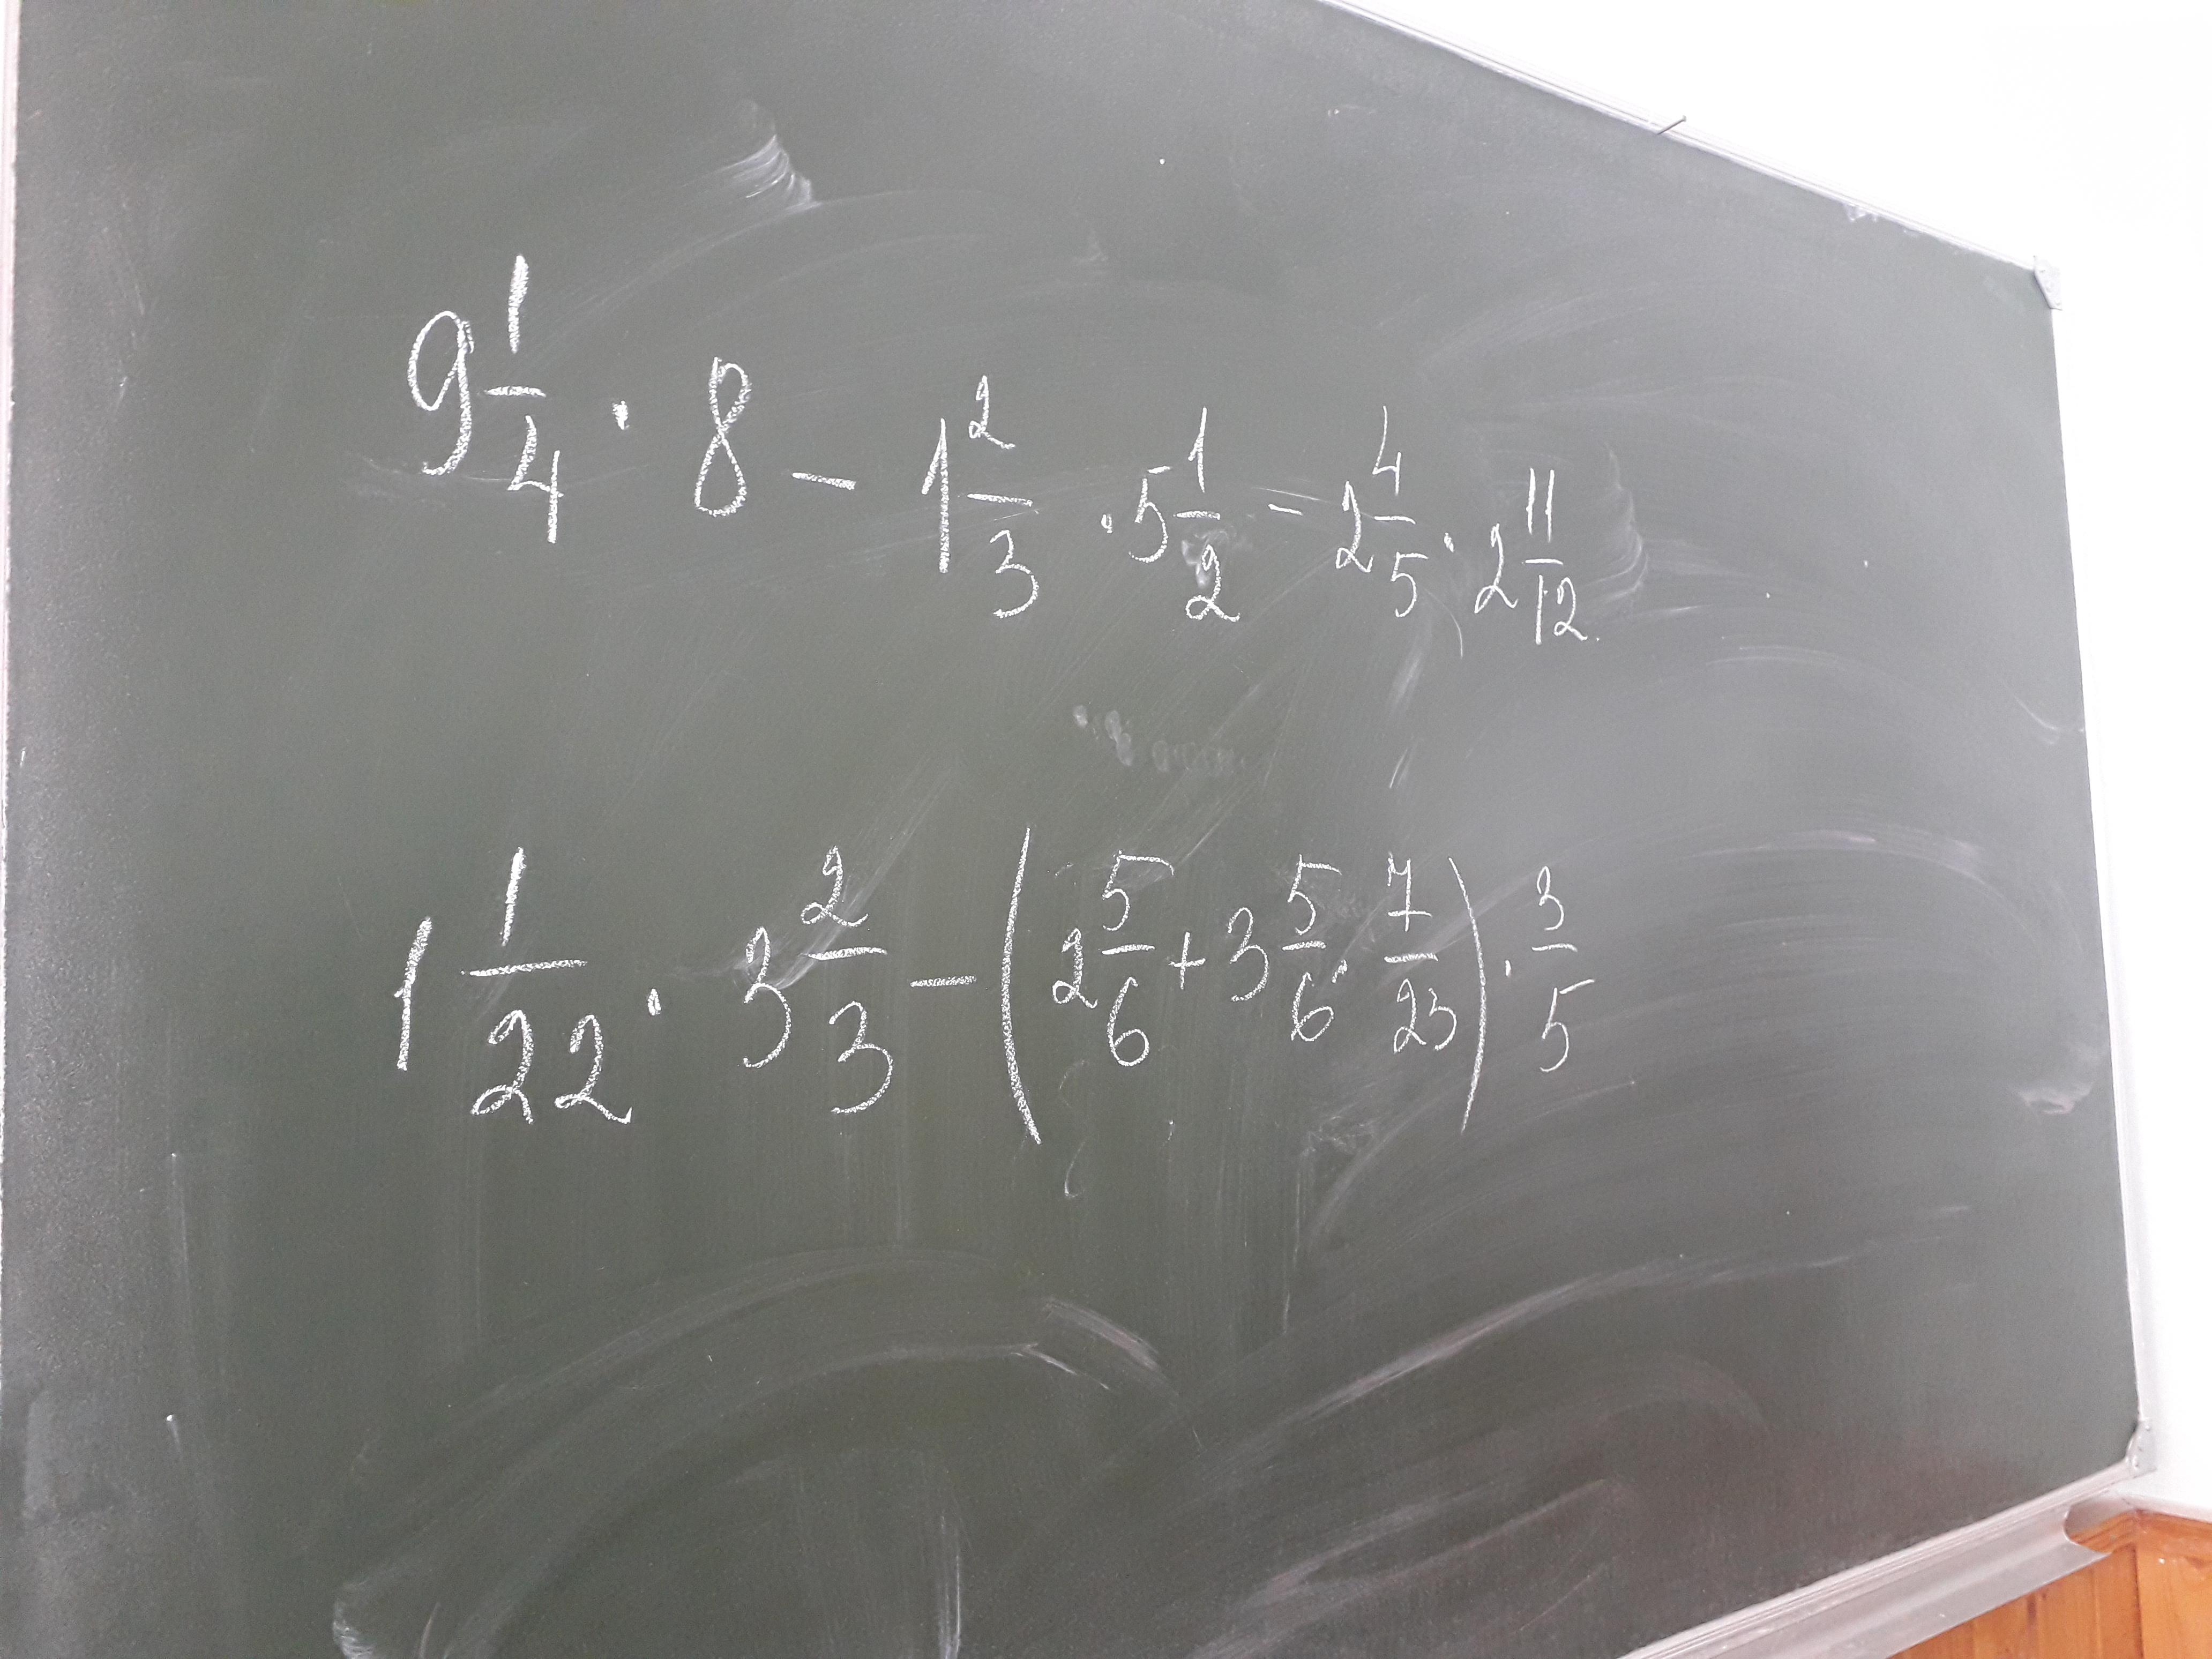 9 1/4 · 8 − 1 2/3 · 5 1/2 − 2 4/5 · 2 11/12
1 1/22 · 3 2/3 − (2 5/6 + 3 5/6 · 7/23) · 3/5